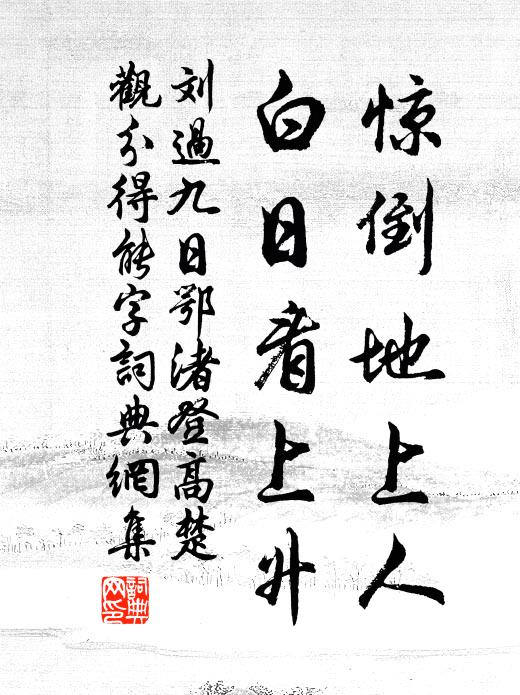 惊倒地上人
白日看上升
刘過九日鄂渚登高楚
觀分得能字詞典網集
詞典网印